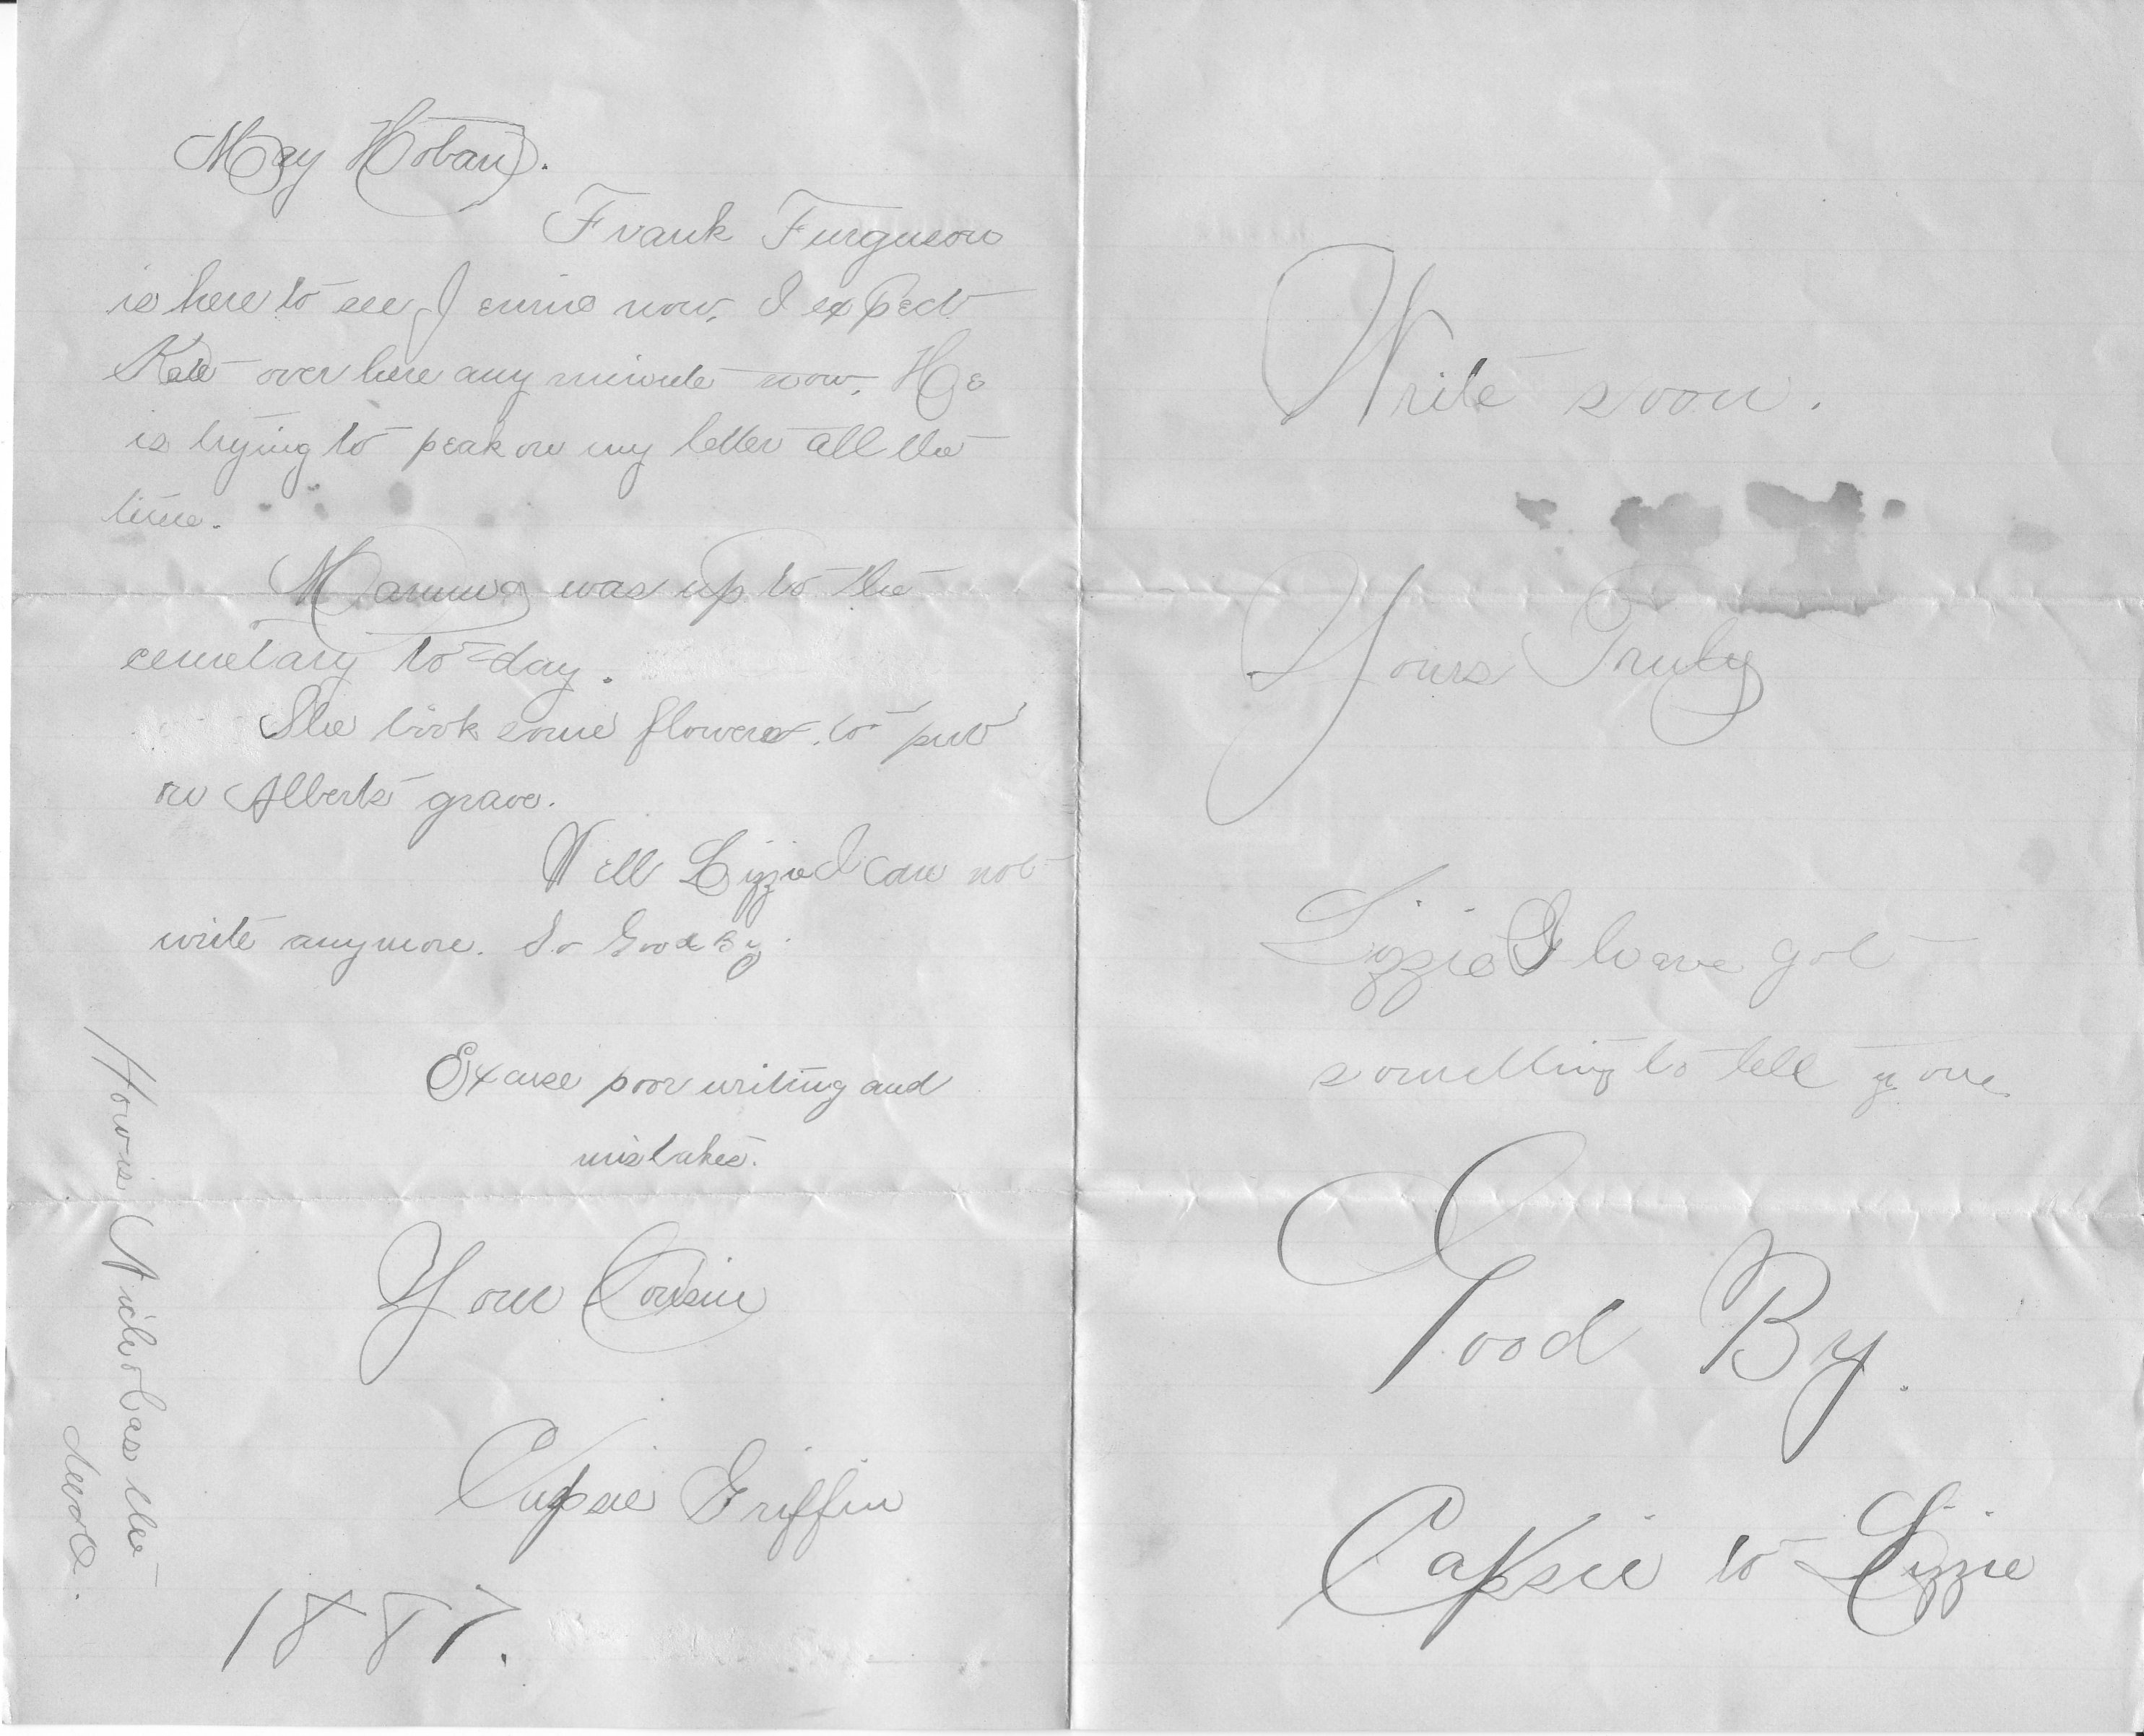 May Hoban.
Frank Furguson
is here to see Jennie now. I expect
Kate over here any minute now. He
is trying to peak on my letter all the
time.
Mamma was up to the
cemetary to-day.
She took some flowers to put
on Alberts grave.
Well Lizzie I can not
write anymore. So Good By.
Excuse poor writing and
mistakes.
Your Cousin
Capsie Griffin
1887.
How is Nicholas the
Write soon.
Yours Truly
Lizzie I have got
something to tell you
Good By.
Capsie to Lizzie